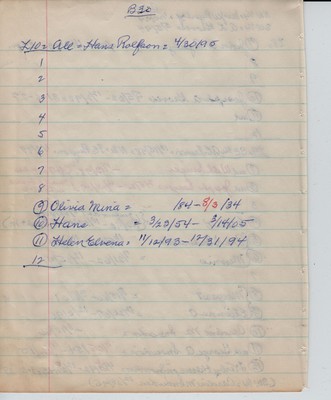 B30
L10 = All = Hans Rolfson = 4/30/95
1
2
3
4
5
6
7
8
(9) Olivia Mina = /84 - 8/3/34
(10) Hans = 3/22/54 - 3/14/05
(11) Helen Elvena = 11/12/93 - 12/31/94
12